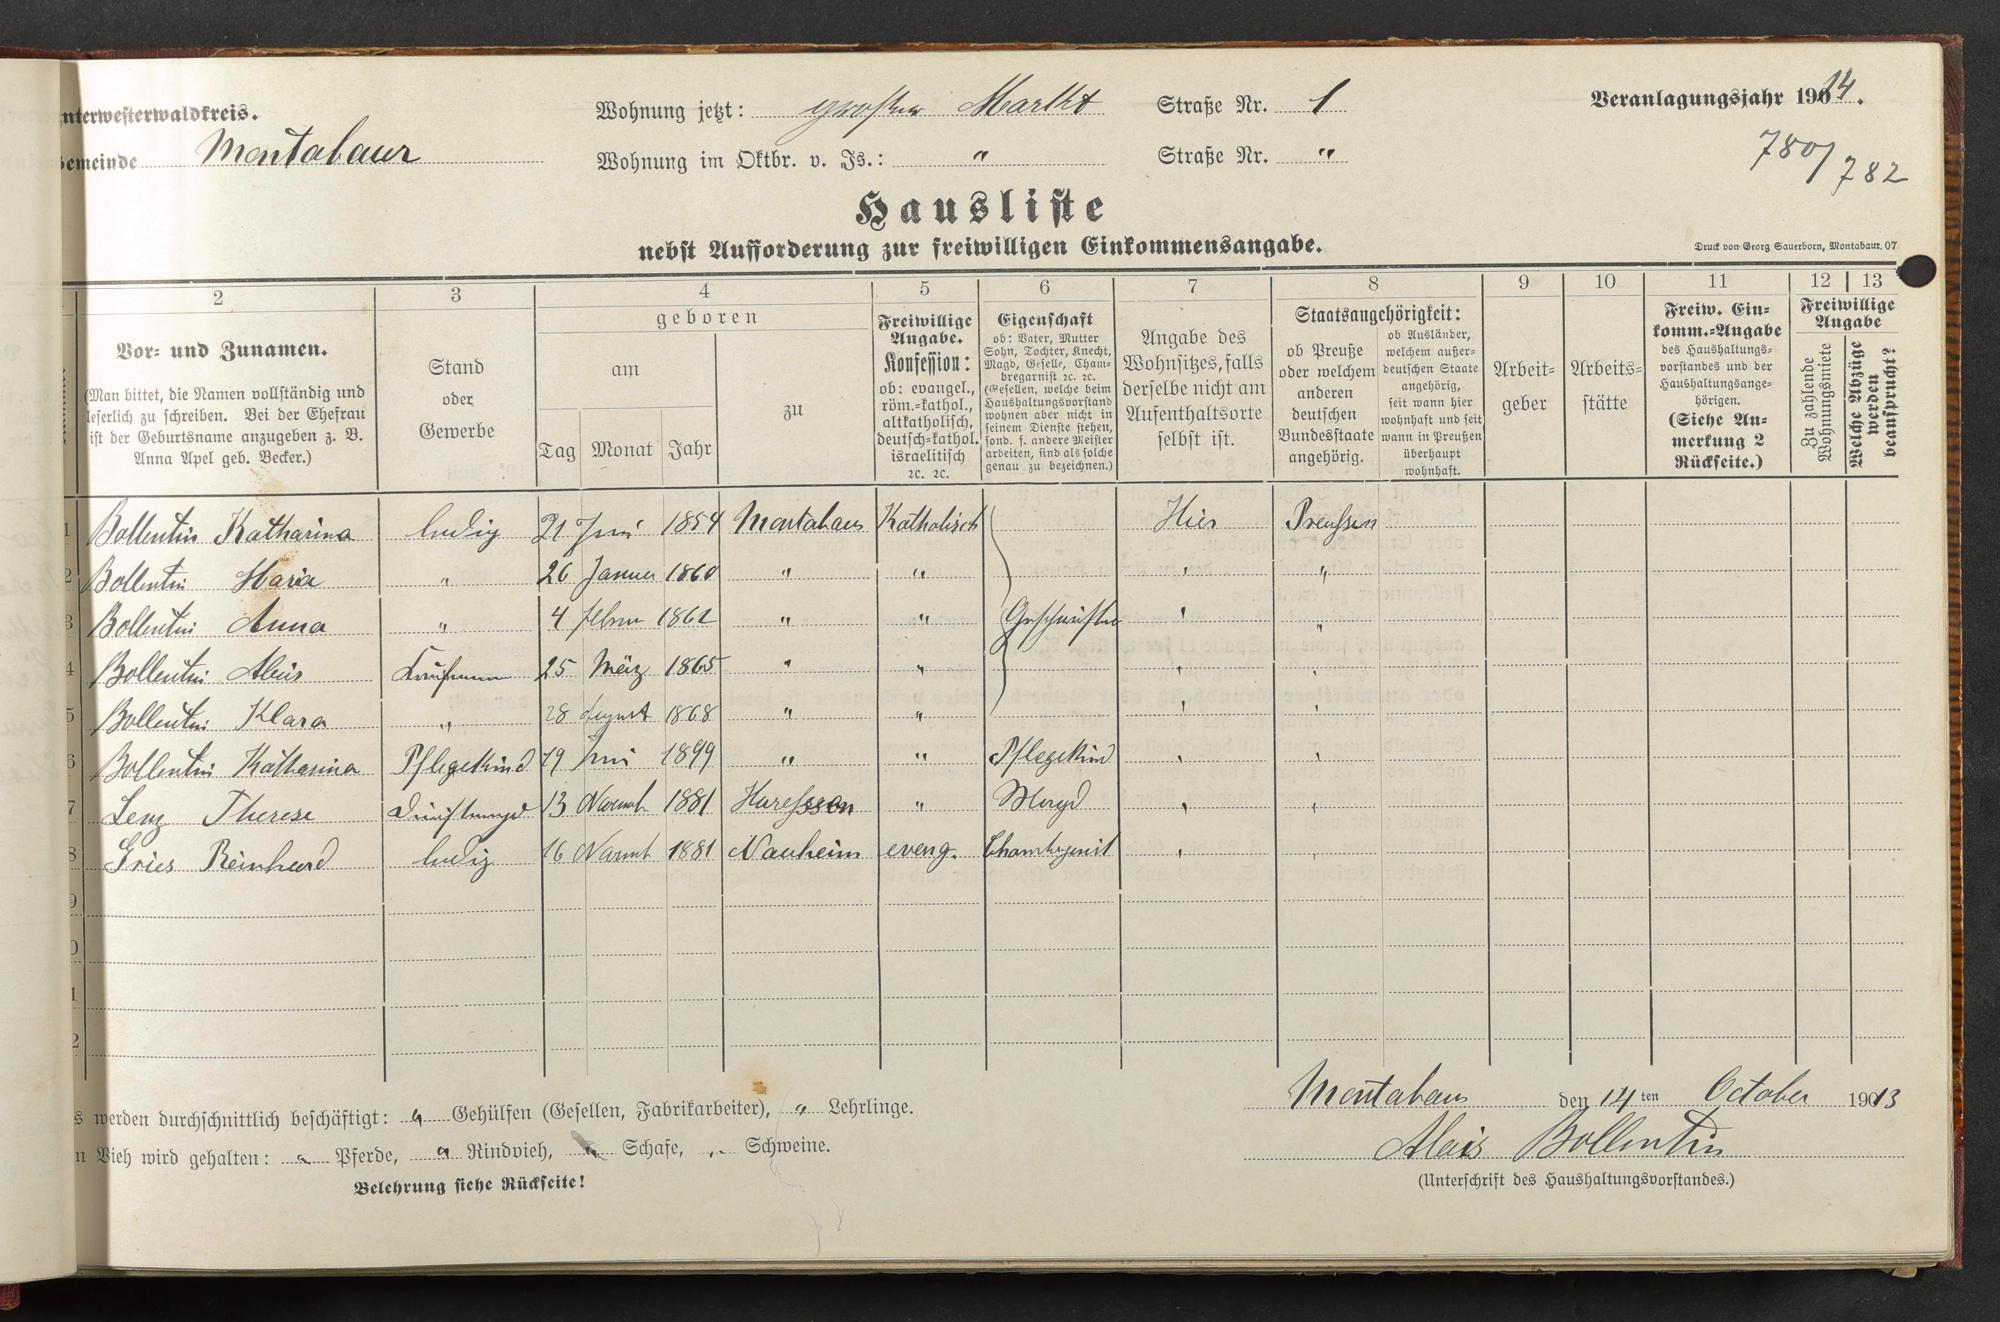 nterwesterwaldkreis.
Wohnung jetzt: großer Markt Straße Nr. 1
Veranlagungsjahr 1914.
emeinde Montabaur
Wohnung im Oktbr. v. Js.: " Straße Nr. "
780/782
Hausliste
nebst Aufforderung zur freiwilligen Einkommensangabe.
Druck von Georg Sauerborn, Montabaur. 07
2 3 4 5 6 7 8 9 10 11 12 13
Vor- und Zunamen.
(Man bittet, die Namen vollständig und
leserlich zu schreiben. Bei der Ehefrau
ist der Geburtsname anzugeben z. B.
Anna Apel geb. Becker.)
Stand
oder
Gewerbe
geboren
am
Tag Monat Jahr
zu
Freiwillige
Angabe.
Konfession:
ob: evangel.,
röm.-kathol.,
altkatholisch,
deutsch-kathol.
israelitisch
ec. ec.
Eigenschaft
ob: Vater, Mutter
Sohn, Tochter, Knecht,
Magd, Geselle, Cham-
bregarnist ec. ec.
(Gesellen, welche beim
Haushaltungsvorstand
wohnen aber nicht in
seinem Dienste stehen,
sond. f. andere Meister
arbeiten, sind als solche
genau zu bezeichnen.)
Angabe des
Wohnsitzes, falls
derselbe nicht am
Aufenthaltsorte
selbst ist.
Staatsangehörigkeit:
ob Preuße
oder welchem
anderen
deutschen
Bundesstaate
angehörig.
ob Ausländer,
welchem außer-
deutschen Staate
angehörig,
seit wann hier
wohnhaft und seit
wann in Preußen
überhaupt
wohnhaft.
Arbeit-
geber
Arbeits-
stätte
Freiw. Ein-
komm.-Angabe
des Haushaltungs-
vorstandes und der
Haushaltungsange-
hörigen.
(Siehe An-
merkung 2
Rückseite.)
Freiwillige
Angabe
Zu zahlende
Wohnungsmiete
Welche Abzüge
werden
beansprucht?
1 Bollentin Katharina ledig 21 Juni 1854 Montabaur Katholisch Hier Preußen
2 Bollentin Maria " 26 Januar 1860 " " " "
3 Bollentin Anna " 4 Febru 1862 " " Geschwister " "
4 Bollentin Alois Kaufmann 25 März 1865 " " " "
5 Bollentin Klara " 28 August 1868 " " " "
6 Bollentin Katharina Pflegekind 19 Juni 1899 " " Pflegekind " "
7 Lenz Therese Dienstmagd 13 Novemb 1881 " Magd " "
8 Fries Reinhard ledig 16 1881 Nauheim eveng. " "
9
0
1
2
s werden durchschnittlich beschäftigt: " Gehülfen (Gesellen, Fabrikarbeiter), " Lehrlinge.
n Vieh wird gehalten: " Pferde, " Rindvieh, " Schafe, " Schweine.
Belehrung siehe Rückseite!
Montabaur den 14ten October 1913
Alois Bollentin
(Unterschrift des Haushaltungsvorstandes.)